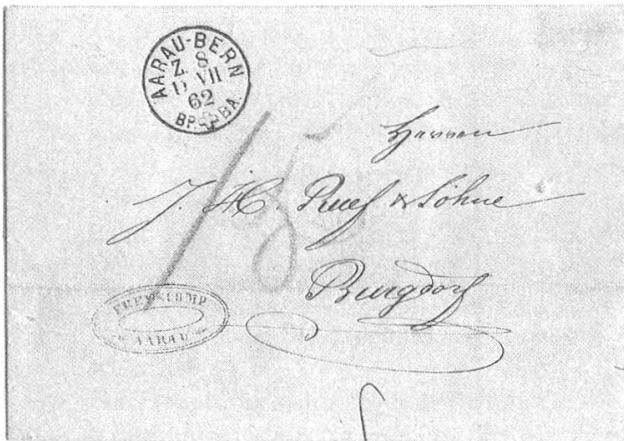 AARAU-BERN
Z. 8
VII
62
BP. BA.
15
Herren
J. H. Ruef & Söhne
Burgdorf
FREY & COMP
AARAU